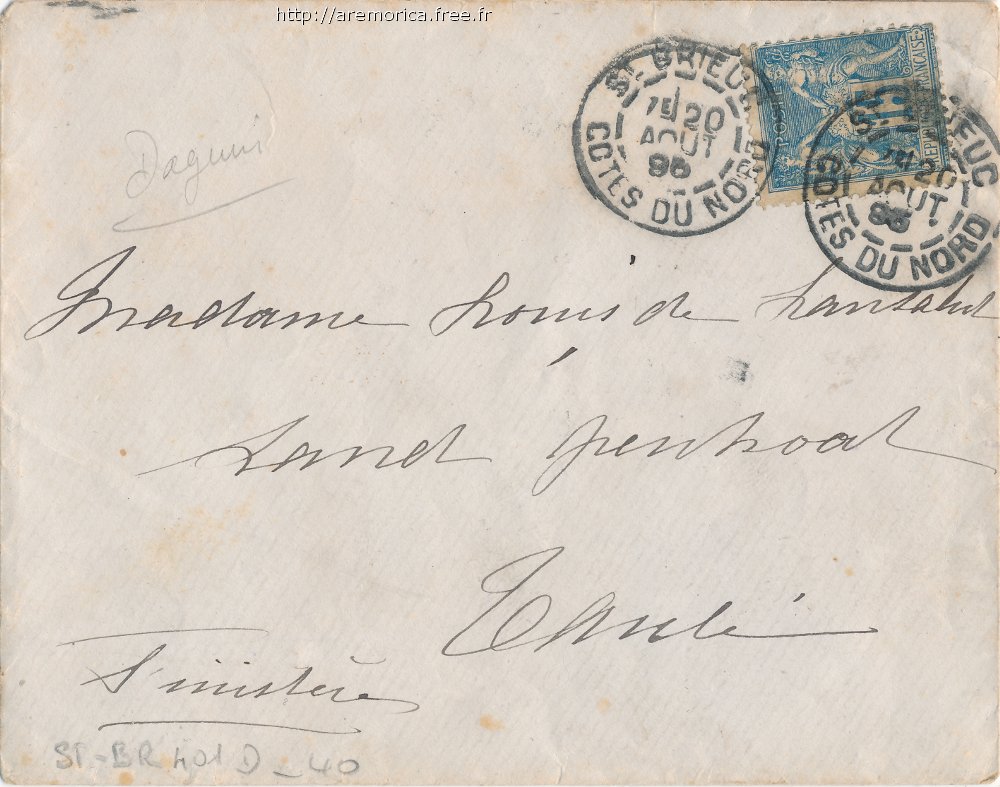 http://aremorica.free.fr
ST BRIEUC
20
AOUT
COTES DU NORD
POSTES
15
REPUBLIQUE FRANÇAISE
ST BRIEUC
20
AOUT
COTES DU NORD
Daguin
Madame Louis de Lansalut
Land penhoat
Taulé
Finistère
ST-BR 401 D _ 40